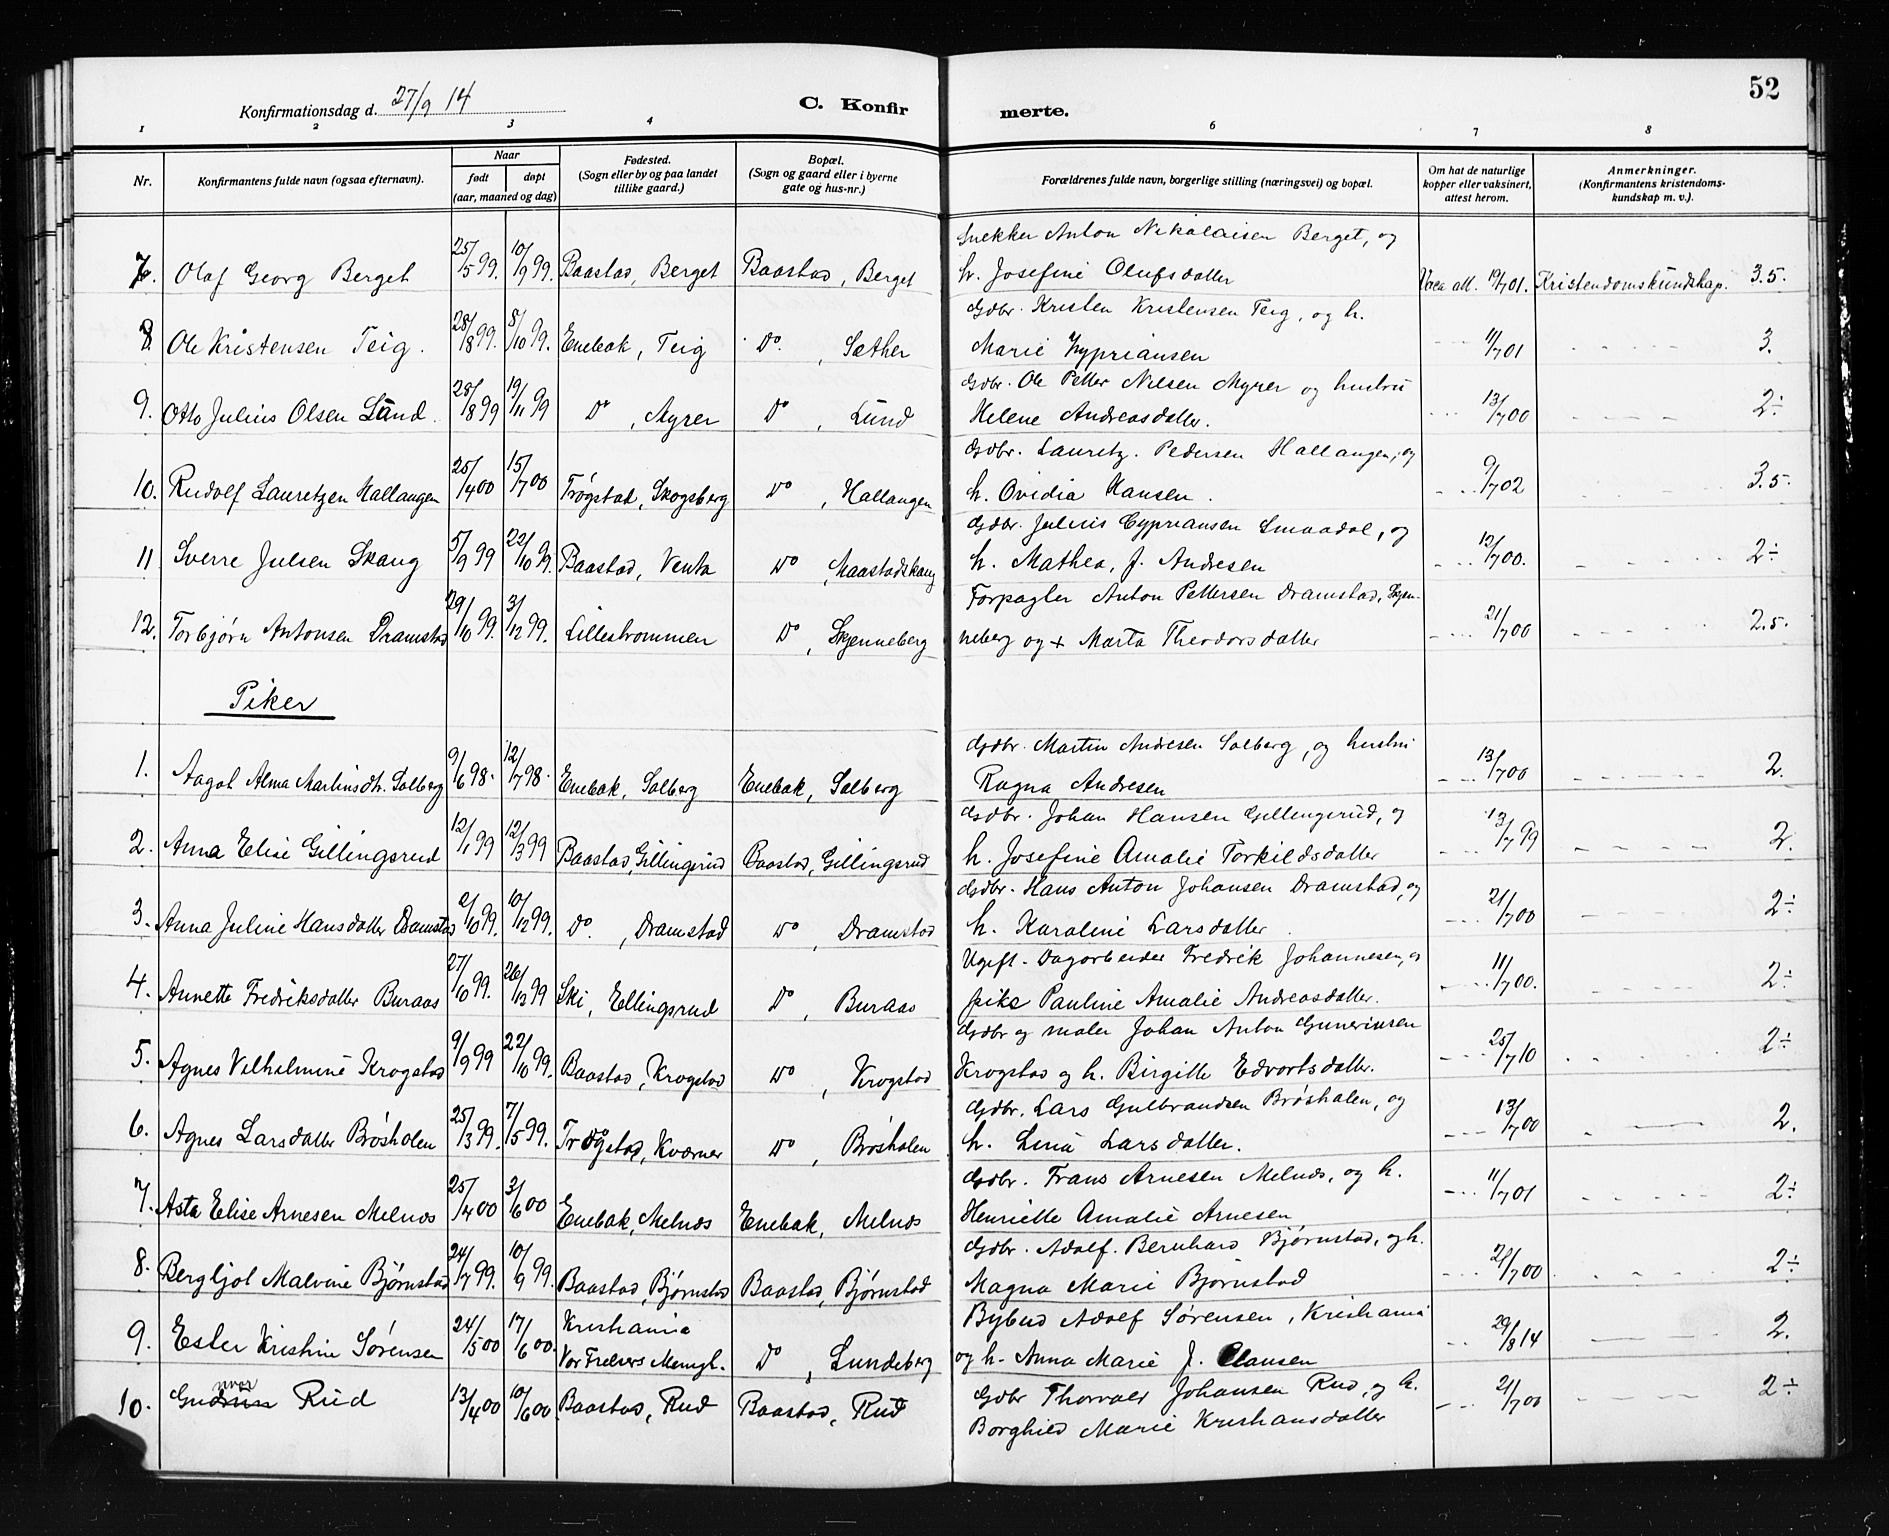 Konfirmationsdag d. 27/9 14
C. Konfir
merte.
52
1 2 3 4 6 7 8
Nr.
Konfirmantens fulde navn (ogsaa efternavn).
Naar
født døpt
(aar, maaned og dag)
Fødested.
(Sogn eller by og paa landet
tillike gaard.)
Bopæl.
(Sogn og gaard eller i byerne
gate og hus-nr.)
Forældrenes fulde navn, borgerlige stilling (næringsvei) og bopæl.
Om hat de naturlige
kopper eller vaksinert,
attest herom.
Anmerkninger.
(Konfirmantens kristendoms-
kundskap m. v.).
Snekker Anton Nikolaisen Berget, og
7. Olaf Georg Berget 25/5 99. 10/9 99. Baastad, Berget Baastad, Berget h. Josefine Olufsdatter Vacc att. 19/7 01. Kristendomskundskap. 3.5.
Gdbr. Kristen Kristensen Teig, og h.
8 Ole Kristensen Teig. 28/8 99. 8/10 99. Enebak, Teig Do. , Sæther Marie Kypriansen 11/7 01 3.
Gdbr. Ole Petter Nilsen Myrer og hustru
9. Otto Julius Olsen Lund. 28/8 99 19/11 99 Do , Myrer Do , Lund Helene Andreasdatter. 13/7 00 2÷
Gdbr. Lauretz. Pedersen Hallangen, og
10. Rudolf Lauretzen Hallangen 25/4 00 15/7 00 Trøgstad, Skogsberg Do , Hallangen h. Ovidia Hansen. 9/7 02 3.5.
Gdbr. Julius Cypriansen Smaadal, og
11 Sverre Julsen Skaug 5/9 99 22/10 99. Baastad, Venta Do , Maastadskaug h. Mathea, J. Andresen 12/7 00. 2÷
Forpagter Anton Pettersen Dramstad, Skjen-
12. Torbjørn Antonsen Dramstad 29/10 99. 3/12 99. Lillestrommen Do , Skjenneberg neberg og + Marta Theodorsdatter 21/7 00 2.5.
Piker
Gdbr. Martin Andresen Solberg, og hustru
1. Aagot Alma Martinsdtr. Solberg 9/6 98. 12/7 98. Enebak, Solberg Enebak, Solberg Ragna Andresen 13/7 00 2.
Gdbr. Johan Hansen Gillingsrud, og
2. Anna Elise Gillingsrud 12/1 99 12/3 99 Baastad, Gillingsrud Baastad, Gillingsrud h. Josefine Amalie Torkildsdatter 13/7 99 2.
Gdbr. Hans Anton Johansen Dramstad, og
3. Anna Juline Hansdatter Dramstad 2/10 99. 10/12 99. Do. , Dramstad Do , Dramstad h. Karoline Larsdatter. 21/7 00 2÷
Ugift. Dagarbeider Fredrik Johannesen, og
4. Annette Fredriksdatter Buraas 27/10 99. 26/12 99 Ski, Ellingsrud Do , Buraas pike Pauline Amalie Andreasdatter. 11/7 00. 2÷
Gdbr og maler Johan Anton Gunerinsen
5. Agnes Vilhelmine Krogstad 9/9 99 22/10 99. Baastad, Krogstad Do , Krogstad Krogstad og h. Birgitte Edvartsdatter. 25/7 10 2÷
Gdbr. Lars Gulbrandsen Brøsholen, og
6. Agnes Larsdatter Brøsholen 25/3 99. 7/5 99. Trøgstad, Kværner Do , Brøsholen h. Lina Larsdatter. 13/7 00 2.
Gdbr. Frans Arnesen Melnæs, og h.
7. Asta Elise Arnesen Melnæs 25/4 00 3/6 00 Enebak, Melnæs Enebak, Melnæs Henriette Amalie Arnesen 11/7 01 2÷
Gdbr. Adolf. Bernhard Bjørnstad, og h.
8. Bergljot Malvine Bjørnstad 24/7 99. 10/9 99. Baastad, Bjørnstad Baastad, Bjørnstad Magna Marie Bjørnstad 21/7 00 2÷
Kristiania Bybud Adolf Sørensen, Kristiania
9. Ester Kristine Sørensen 24/5 00 17/6 00. Vor Frelsers Menigh. Do , Lundeberg og h. Anna Marie J. Clausen 29/8 14 2.
nvor
10. Gudrun Rud 13/4 00 10/6 00 Baastad, Rud Baastad, Rud Gdbr Thorvald Johansen Rud, og h. 21/7 00 2÷
Borghild Marie Kristiansdatter